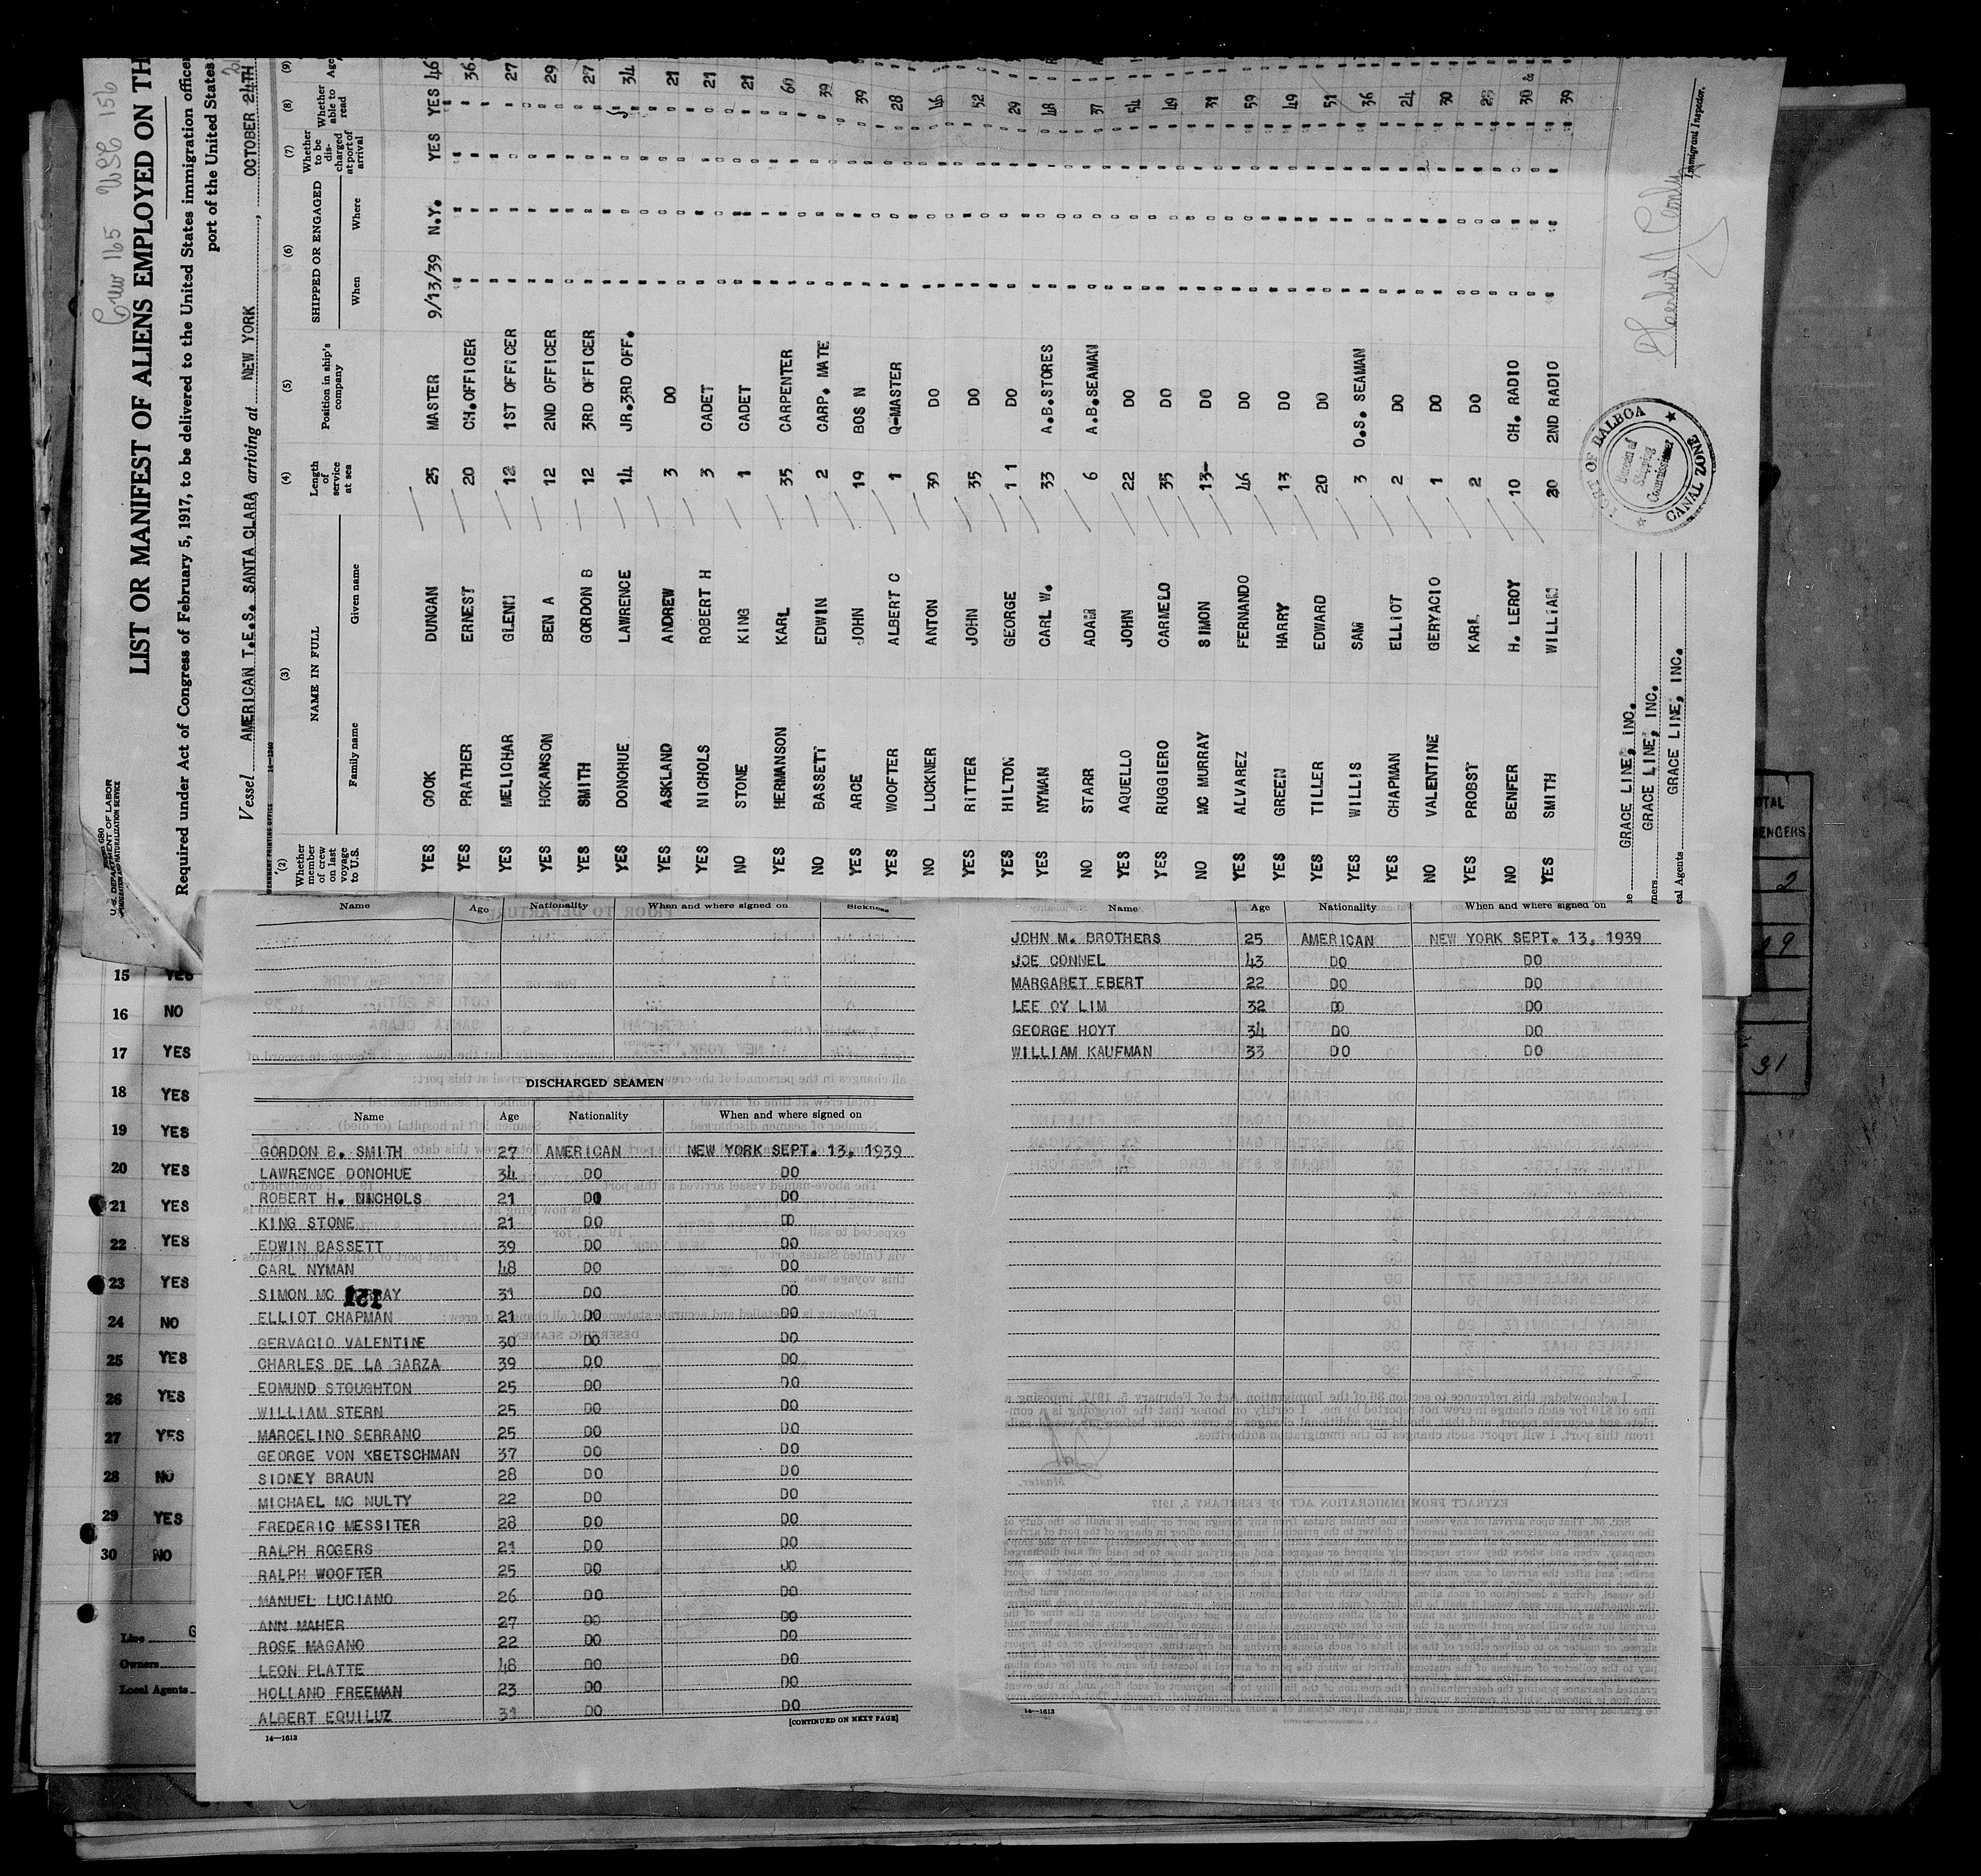 Crew 165 USC 156
U.S. DEPARTMENT OF LABOR
LIST OR MANIFEST OF ALIENS EMPLOYED ON TH
Required under Act of Congress of February 5, 1917, to be delivered to the United States immigration officer
port of the United States
Vessel AMERICAN T.E.S. SANTA CLARA, arriving at NEW YORK, OCTOBER 24TH
(2) (3) (4) (5) (6) (7) (8) (9)
Whether member of crew on last voyage to U.S. NAME IN FULL Length of service at sea Position in ship's company SHIPPED OR ENGAGED Whether to be discharged at port of arrival Whether able to read Age
Family name Given name When Where
YES COOK DUNCAN 25 MASTER 9/13/39 N.Y. YES YES 46
YES PRATHER ERNEST 20 CH.OFFICER " " " " 36
YES MELICHAR GLENN 12 1ST OFFICER " " " " 27
YES HOKANSON BEN A 12 2ND OFFICER " " " " 29
YES SMITH GORDON B 12 3RD OFFICER " " " " 27
YES DONOHUE LAWRENCE 14 JR.3RD OFF. " " " " 34
YES ASKLAND ANDREW 3 DO " " " " 21
YES NICHOLS ROBERT H 3 CADET " " " " 21
NO STONE KING 1 CADET " " " " 21
YES HERMANSON KARL 35 CARPENTER " " " " 60
NO BASSETT EDWIN 2 CARP. MATE " " " " 39
YES ARCE JOHN 19 BOS N " " " " 39
YES WOOFTER ALBERT C 1 Q-MASTER " " " " 28
NO LUCKNER ANTON 39 DO " " " " 46
YES RITTER JOHN 35 DO " " " " 52
YES HILTON GEORGE 11 DO " " " " 29
YES NYMAN CARL W. 33 A.B.STORES " " " " 48
NO STARR ADAM 6 A.B.SEAMAN " " " " 37
YES AQUELLO JOHN 22 DO " " " " 54
YES RUGGIERO CARMELO 35 DO " " " " 49
NO MC MURRAY SIMON 13 DO " " " " 31
YES ALVAREZ FERNANDO 46 DO " " " " 59
YES GREEN HARRY 13 DO " " " " 49
YES TILLER EDWARD 20 DO " " " " 51
YES WILLIS SAM 3 O.S. SEAMAN " " " " 36
YES CHAPMAN ELLIOT 2 DO " " " " 24
NO VALENTINE GERYACIO 1 DO " " " " 30
YES PROBST KARL 2 DO " " " "
NO BENFER H. LEROY 10 CH. RADIO " " " " 30
YES SMITH WILLIAM 20 2ND RADIO " " " " 39
GRACE LINE, INC.
GRACE LINE, INC.
cal Agents GRACE LINE, INC.
PORT OF BALBOA
Bureau of Shipping Commissioner
CANAL ZONE
Immigrant Inspector.
Name Age Nationality When and where signed on Sickness
DISCHARGED SEAMEN
Name Age Nationality When and where signed on
GORDON B. SMITH 27 AMERICAN NEW YORK SEPT. 13, 1939
LAWRENCE DONOHUE 34 DO DO
ROBERT H. NICHOLS 21 DO DO
KING STONE 21 DO DO
EDWIN BASSETT 39 DO DO
CARL NYMAN 48 DO DO
SIMON MC MURRAY 31 DO DO
ELLIOT CHAPMAN 21 DO DO
GERVACIO VALENTINE 30 DO DO
CHARLES DE LA GARZA 39 DO DO
EDMUND STOUGHTON 25 DO DO
WILLIAM STERN 25 DO DO
MARCELINO SERRANO 25 DO DO
GEORGE VON KRETSCHMAN 37 DO DO
SIDNEY BRAUN 28 DO DO
MICHAEL MC NULTY 22 DO DO
FREDERIC MESSITER 28 DO DO
RALPH ROGERS 21 DO DO
RALPH WOOFTER 25 DO DO
MANUEL LUCIANO 26 DO DO
ANN MAHER 27 DO DO
ROSE MAGANO 22 DO DO
LEON PLATTE 48 DO DO
HOLLAND FREEMAN 23 DO DO
ALBERT EQUILUZ 31 DO DO
[CONTINUED ON NEXT PAGE]
14—1613
Name Age Nationality When and where signed on
JOHN M. BROTHERS 25 AMERICAN NEW YORK SEPT. 13, 1939
JOE CONNEL 43 DO DO
MARGARET EBERT 22 DO DO
LEE OY LIM 32 DO DO
GEORGE HOYT 34 DO DO
WILLIAM KAUFMAN 33 DO DO
14—1613
15 YES
16 NO
17 YES
18 YES
19 YES
20 YES
21 YES
22 YES
23 YES
24 NO
25 YES
26 YES
27 YES
28 NO
29 YES
30 NO
Line G
Owners
Local Agents